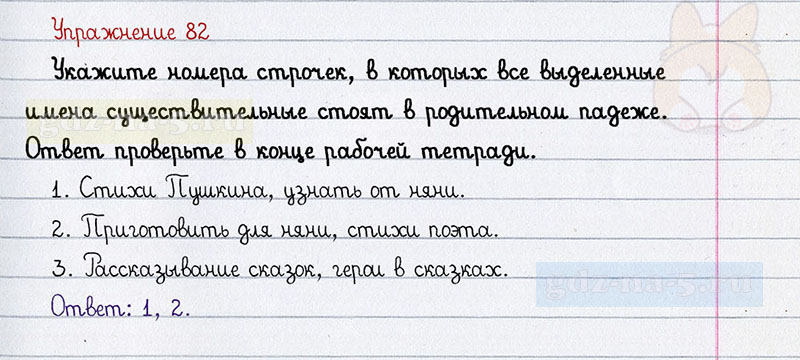 Упражнение 82
Укажите номера строчек, в которых все выделенные
имена существительные стоят в родительном падеже.
Ответ проверьте в конце рабочей тетради.
1. Стихи Пушкина, узнать от няни.
2. Приготовить для няни, стихи поэта.
3. Рассказывание сказок, герои в сказках.
Ответ: 1, 2.
gdz-na-5.ru
gdz-na-5.ru